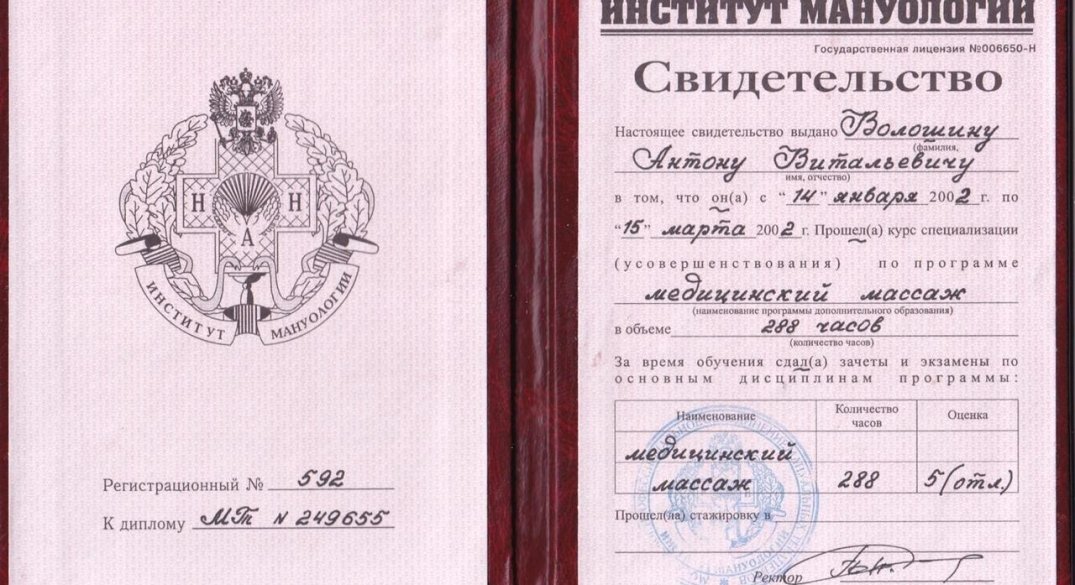 Н Н
А
ИНСТИТУТ МАНУОЛОГИИ
Регистрационный № 592
К диплому МТ № 249655
ИНСТИТУТ МАНУОЛОГИИ
Государственная лицензия №006650-Н
Свидетельство
Настоящее свидетельство выдано Волошину
(фамилия,
Антону Витальевичу
имя, отчество)
в том, что он(а) с "14" января 2002 г. по
"15" марта 2002 г. Прошел(а) курс специализации
(усовершенствования) по программе
медицинский массаж
(наименование программы дополнительного образования)
в объеме 288 часов
(количество часов)
За время обучения сдал(а) зачеты и экзамены по
основным дисциплинам программы:
Наименование Количество часов Оценка
медицинский
массаж 288 5 (отл.)
Прошел(на) стажировку в
Ректор
МАНУОЛОГИИ